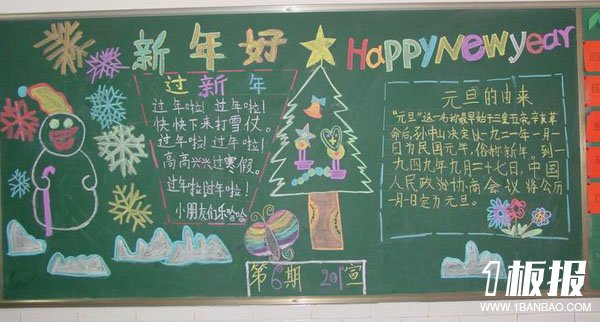 新年好
HAPPY New year
过新年
过年啦!过年啦!
快快下来打雪仗。
过年啦!过年啦!
高高兴兴过寒假。
过年啦过年啦!
小朋友们乐哈哈
元旦的由来
“元旦”这一名称最早始于三皇五帝,辛亥革
命后,孙中山决定以一九二一年一月一
日为民国元年,俗称新年。到一
九四九年九月二十七日,中国
人民政治协商会议将公历
一月一日定为元旦。
第6期 201宣
1板报
WWW.1BANBAO.COM